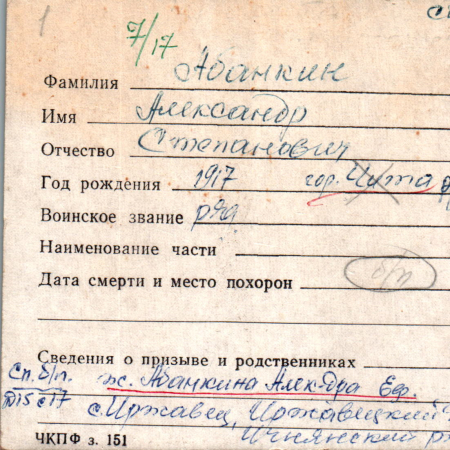 1
7/17
Фамилия Абанкин
Имя Александр
Отчество Степанович
Год рождения 1917 гор. Чита
Воинское звание ряд
Наименование части
Дата смерти и место похорон б/п
Сведения о призыве и родственниках
Сп. б/п. ж. Абанкина Алек-дра Еф.
с. Иржавец, Иржавецкий
ЧКПФ з. 151 Ичнянский р